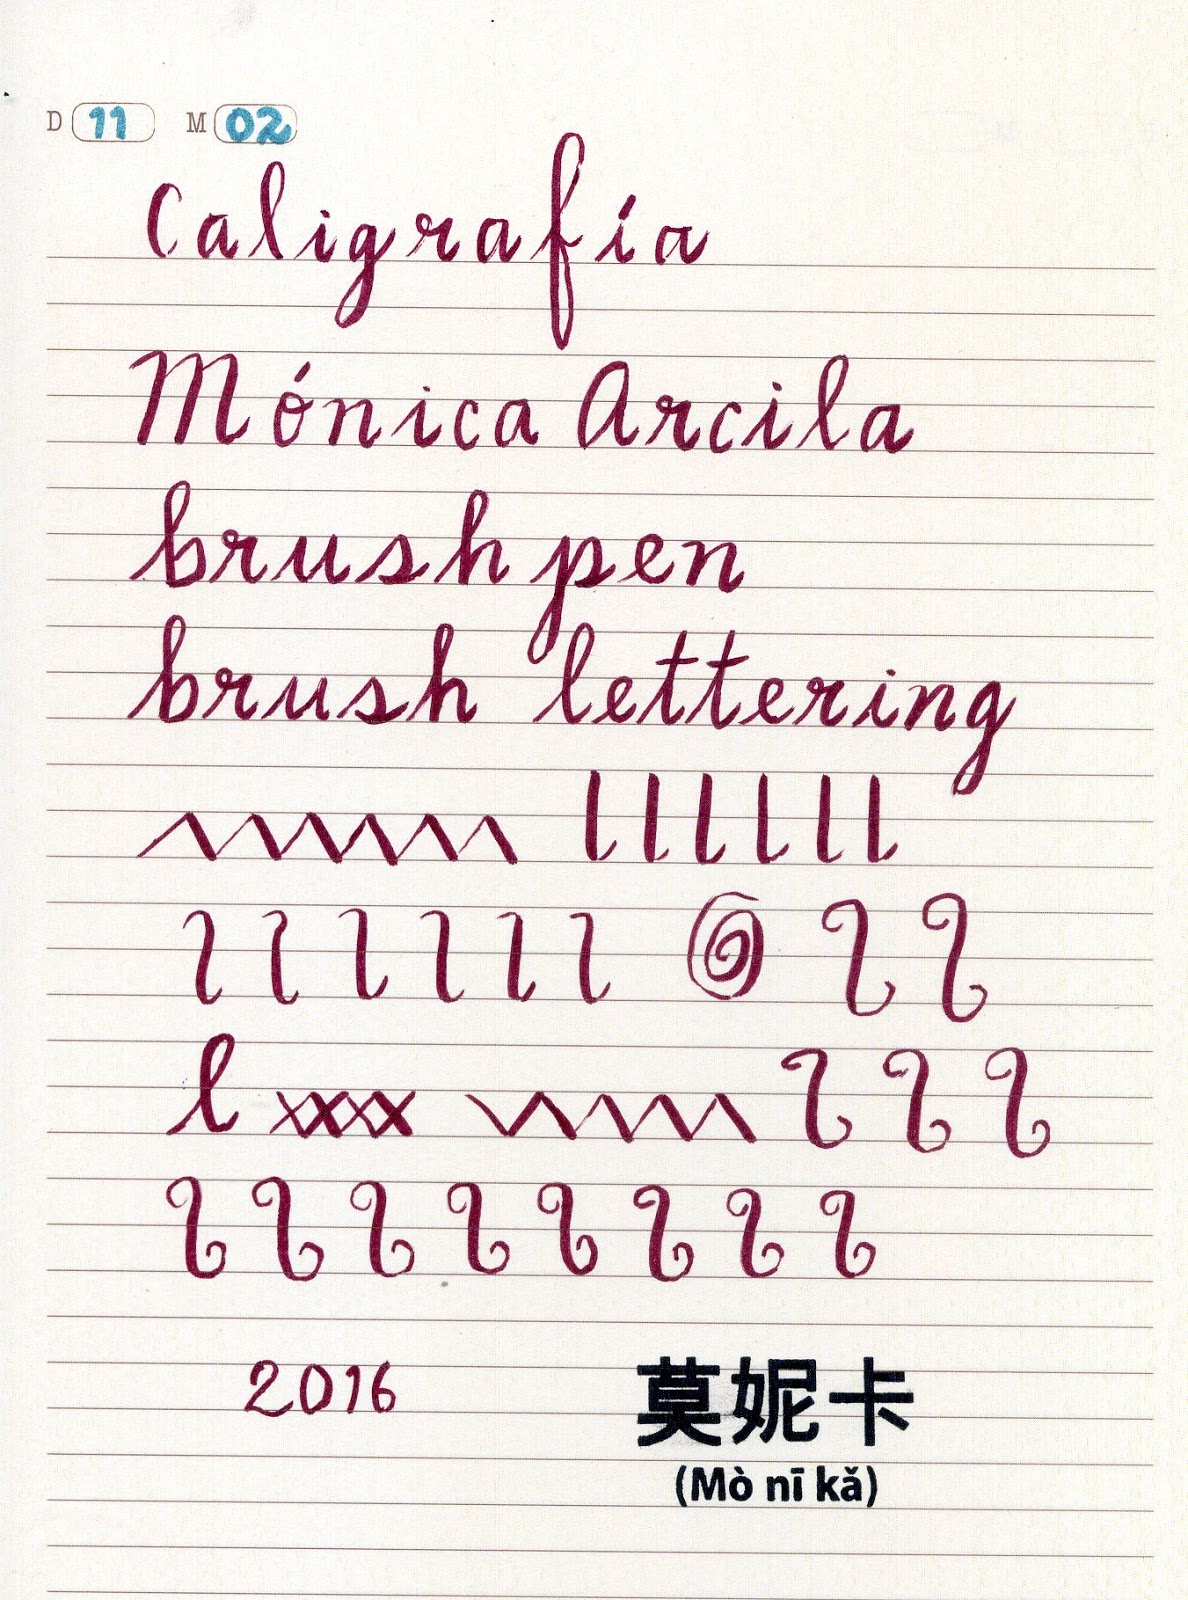 D 11 M 02
Caligrafía
Mónica Arcila
brush pen
brush lettering
2016
莫妮卡
(Mò nī kǎ)